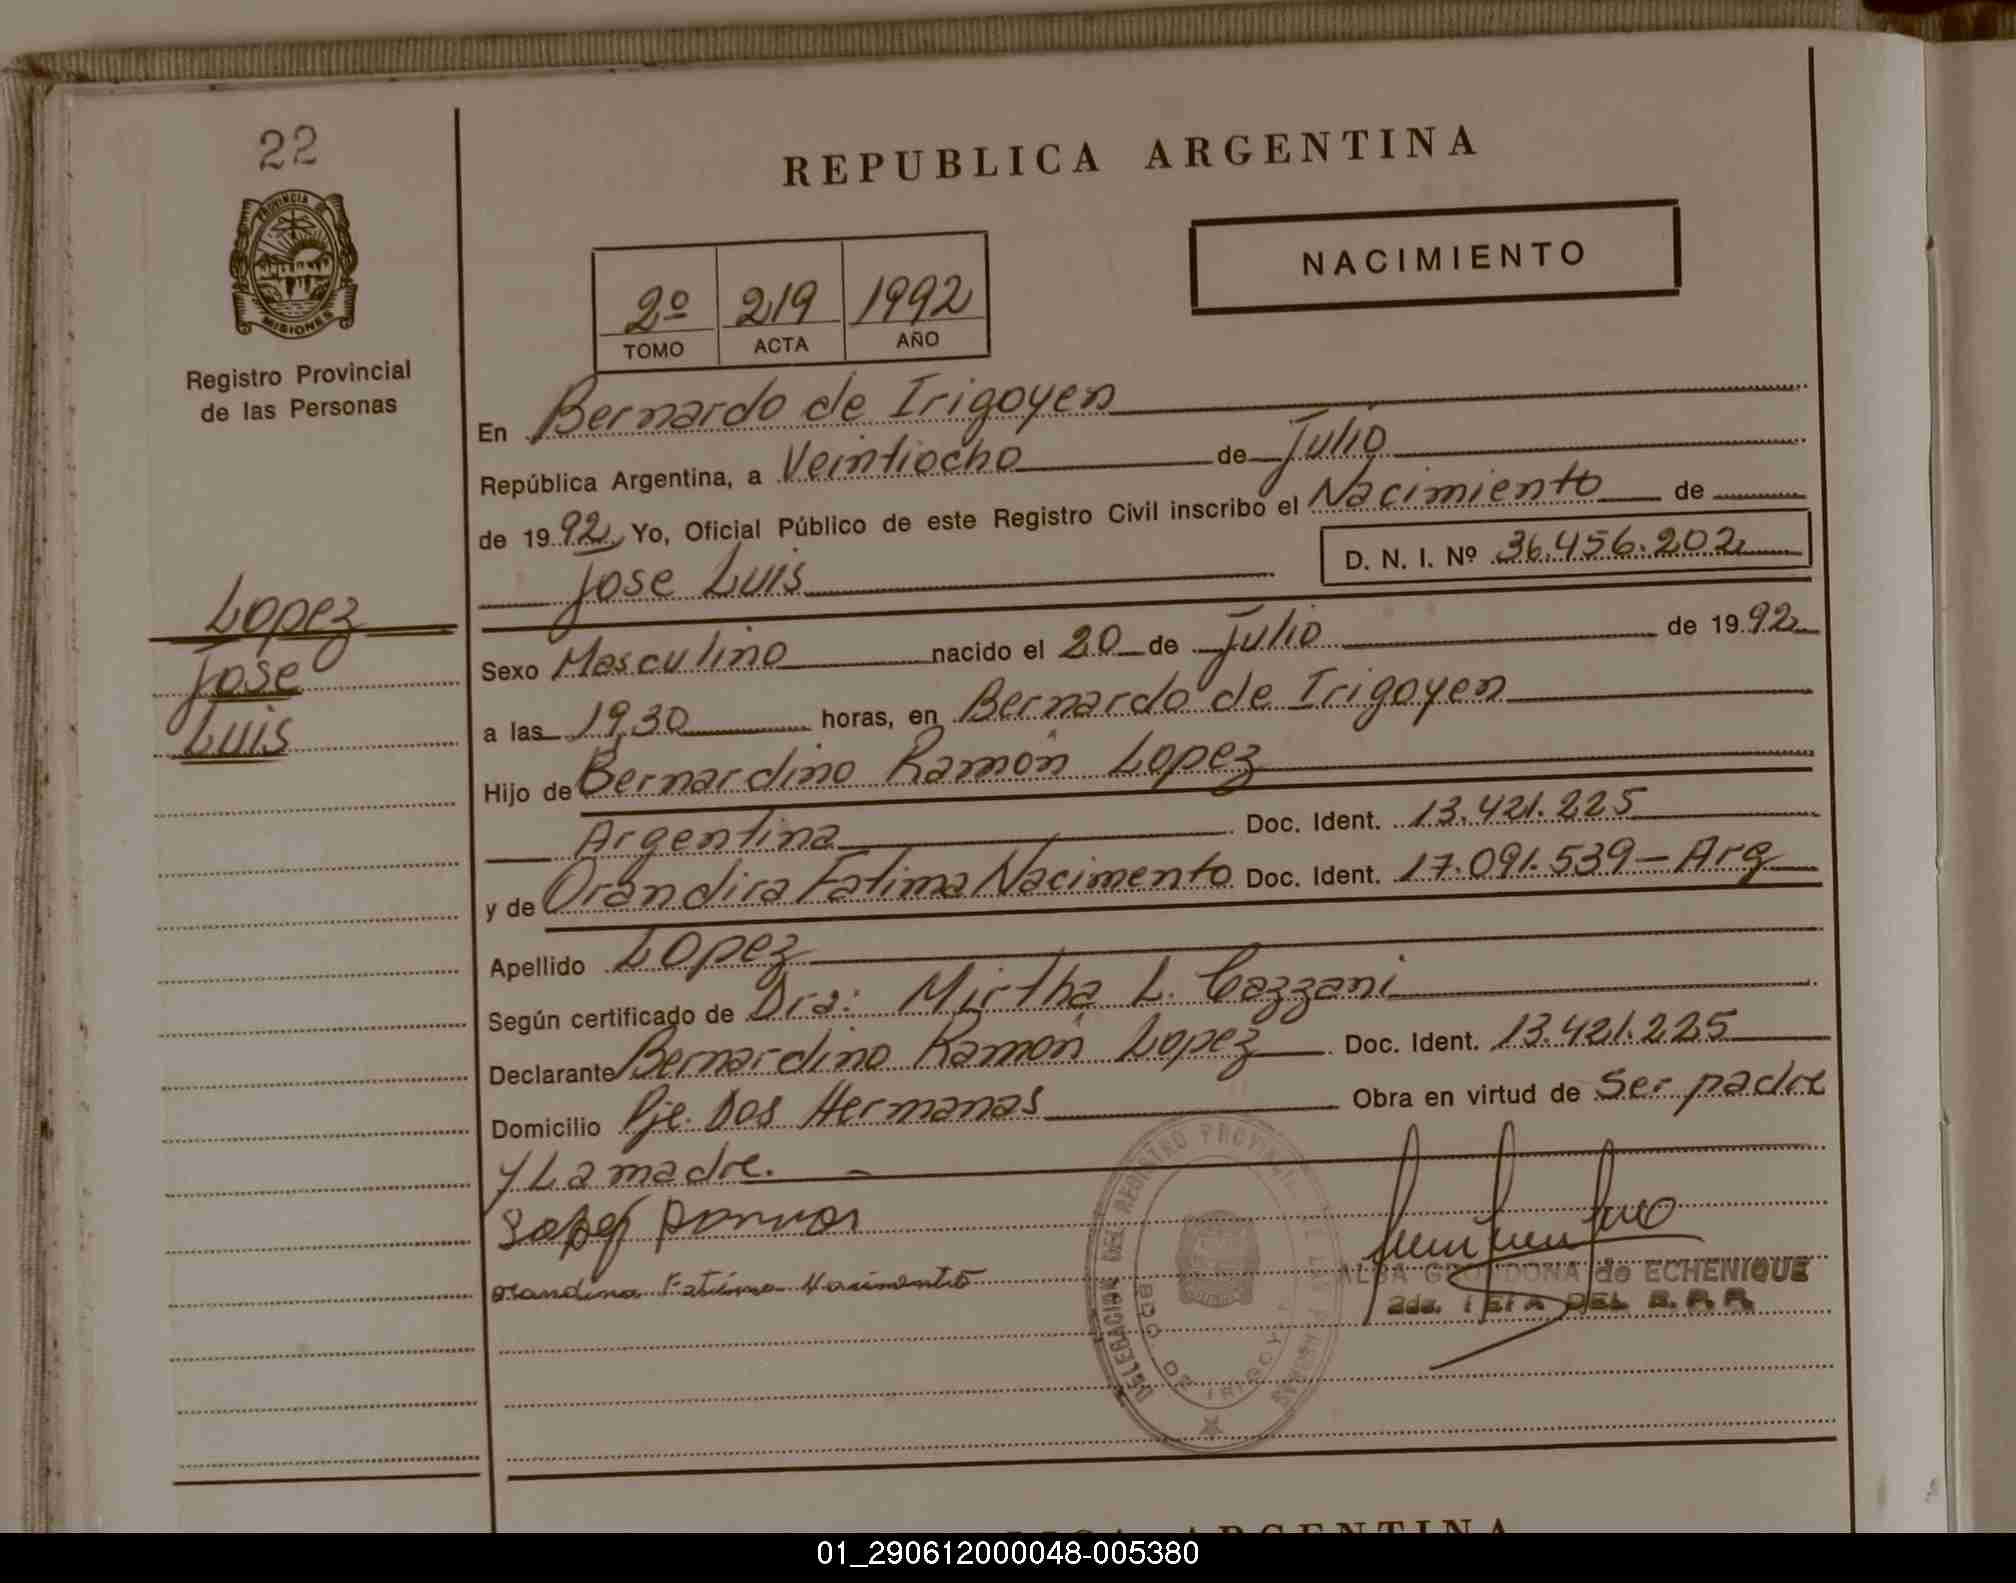 22
PROVINCIA
MISIONES
Registro Provincial
de las Personas
Lopez
Jose
Luis
REPUBLICA ARGENTINA
NACIMIENTO
2º 219 1992
TOMO ACTA AÑO
En Bernardo de Irigoyen
República Argentina, a Veintiocho de Julio
de 1992 Yo, Oficial Público de este Registro Civil inscribo el Nacimiento de
Jose Luis D. N. I. Nº 36.456.202
Sexo Masculino nacido el 20 de Julio de 1992
a las 19,30 horas, en Bernardo de Irigoyen
Hijo de Bernardino Ramón Lopez
Argentina Doc. Ident. 13.421.225
y de Orandira Fatima Nacimento Doc. Ident. 17.091.539 - Arg
Apellido Lopez
Según certificado de Dra: Mirtha L. Cazzani
Declarante Bernardino Ramón Lopez Doc. Ident. 13.421.225
Domicilio Pje. Dos Hermanas Obra en virtud de Ser padre
y La madre.
DELEGACION DEL REGISTRO PROVINCIAL DE LAS PERSONAS
BDO. DE IRIGOYEN
Fatima Nacimento
ALBA GRONDONA de ECHENIQUE
2da. JEFA DEL R. P. P.
ARGENTINA
01_290612000048-005380